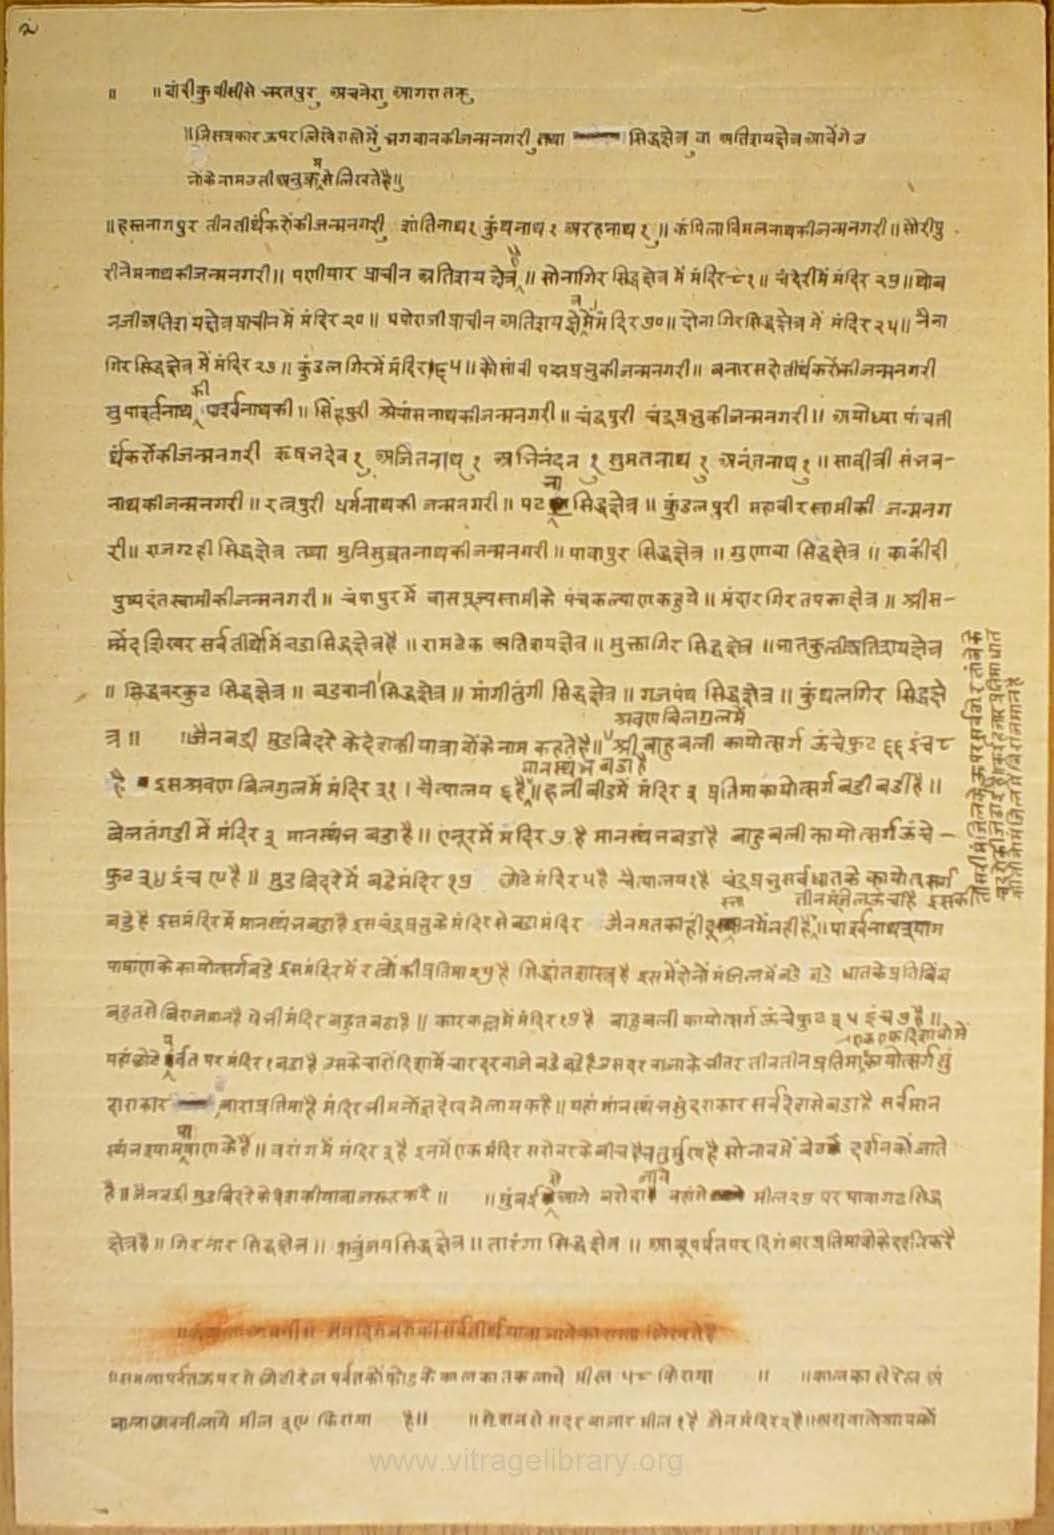 २
॥ ॥ बांदीकुवीसीसे भरतपुर अचनेरा आगरा तक
॥ जिसप्रकार ऊपर लिखे रास्ते में भगवान की जन्मनगरी तथा सिद्धक्षेत्र वा अतिशयक्षेत्र आवेंगे उ
नोके नाम उतीअनुक्रमसे लिखते है॥
॥ हस्तनागपुर तीन तीर्थंकरोंकी जन्मनगरी शांतिनाथ१ कुंथनाथ१ अरहनाथ१॥ कंपिला विमलनाथकी जन्मनगरी॥ सोरीपु
री नेमनाथकी जन्मनगरी॥ पणीयार प्राचीन अतिशय क्षेत्र है॥ सोनागिर सिद्धक्षेत्र में मंदिर ८१॥ चंदेरी में मंदिर २५॥ थोव
नजी अतिशयक्षेत्र प्राचीन में मंदिर २०॥ पपोराजी प्राचीन अतिशय क्षेत्रमें मंदिर ७०॥ दोनागिर सिद्धक्षेत्र में मंदिर २५॥ नैना
गिर सिद्धक्षेत्र में मंदिर २७॥ कुंडलगिरमें मंदिर ६५॥ कौसांवी पद्मप्रभुकी जन्मनगरी॥ बनारस दो तीर्थंकरोंकी जन्मनगरी
सुपार्श्वनाथकी पार्श्वनाथकी॥ सिंहपुरी श्रेयांसनाथकी जन्मनगरी॥ चंद्रपुरी चंद्रप्रभुकी जन्मनगरी॥ अयोध्या पांच ती
र्थंकरोंकी जन्मनगरी ऋषभदेव१ अजितनाथ१ अभिनंदन१ सुमतनाथ१ अनंतनाथ१॥ सावीत्री संभव-
नाथकी जन्मनगरी॥ रत्नपुरी धर्मनाथकी जन्मनगरी॥ पटना सिद्धक्षेत्र॥ कुंडलपुरी महावीरस्वामीकी जन्मनग
री॥ राजग्रही सिद्धक्षेत्र तथा मुनिसुव्रतनाथकी जन्मनगरी॥ पावापुर सिद्धक्षेत्र॥ गुणावा सिद्धक्षेत्र॥ काकीदी
पुष्पदंतस्वामीकी जन्मनगरी॥ चंपापुरमें वासपूज्यस्वामीके पंचकल्याणक हुये॥ मंदारगिर तपका क्षेत्र॥ श्रीस-
म्मेदशिखर सर्व तीर्थों में बडा सिद्धक्षेत्र है॥ रामटेक अतिशयक्षेत्र॥ मुक्तागिर सिद्धक्षेत्र॥ भातकुली अतिशयक्षेत्र
॥ सिद्धवरकुट सिद्धक्षेत्र॥ बडवानी सिद्धक्षेत्र॥ मांगीतुंगी सिद्धक्षेत्र॥ गजपंथ सिद्धक्षेत्र॥ कुंथलगिर सिद्धक्षे
श्रवण बिलगुलमें
त्र॥ ॥ जैनबद्री मुडबिद्रे के देशकी यात्रावोंके नाम कहते है॥ श्री बाहुबली कायोत्सर्ग ऊंचे फुट ६६ इंच ८
मानस्थंभ बडा है
है इस श्रवण बिलगुलमें मंदिर ३१। चैत्यालय ६ है॥ हलीबीडमें मंदिर ३ प्रतिमा कायोत्सर्ग बडी बडी है॥
बेलतंगडी में मंदिर ३ मानस्थंभ बडा है॥ एनूरमें मंदिर ७ है मानस्थंभ बडा है बाहुबली कायोत्सर्ग ऊंचे -
फुट ३४ इंच ९ है॥ मुडबिद्रे में बडे मंदिर १५ छोटे मंदिर ५ है चैत्यालय१ है चंद्रप्रभु सर्वधातके कायोत्सर्ग
तीन मंजिल ऊंचा है इसकी
बडे है इस मंदिरमें मानस्थंभ बडा है इस चंद्रप्रभुके मंदिरसे बडा मंदिर जैनमतका हीदूस्तानमें नही है॥ पार्श्वनाथ श्याम
पाषाणके कायोत्सर्ग बडे इस मंदिर में रत्नोंकी प्रतिमा २५ है सिद्धांतशास्त्र है इसमें दोनों मंजिलमें बडे बडे धातके प्रतिबिंब
बहुतसे बिराजमान है ये भी मंदिर बहुत बडा है॥ कारकलमें मंदिर १५ है बाहुबली कायोत्सर्ग ऊंचे फुट ३५ इंच ७ है॥
एक एक दिशावोमें
यहां छोटे पर्वत पर मंदिर १ बडा है उसके चारों दिशामें चार दरवाजे बडे बडे है उस दरवाजाके भीतर तीन तीन प्रतिमा कायोत्सर्ग सुं
दराकार बारा प्रतिमा है मंदिर भी मनोज्ञ देखने लायक है॥ यहां मानस्थंभ सुंदराकार सर्व देशसे बडा है सर्व मान
स्थंभ श्याम पाषाणके है॥ वरांगमें मंदिर ३ है इनमें एक मंदिर सरोवरके बीच है चतुर्मुख है सो नावमें बेठके दर्शनको जाते
है॥ जैनबद्री मुडबिद्रे के देशकी यात्रा जरूर करै॥ ॥ मुंबईसे आगे बरोदा जावे वहांसे मील २५ पर पावागढ सिद्ध
क्षेत्र है॥ गिरनार सिद्धक्षेत्र॥ शत्रुंजय सिद्धक्षेत्र॥ तारंगा सिद्धक्षेत्र॥ आबू पर्वतपर दिगंबर प्रतिमावोंके दर्शन करै
जैन दिगंबरोकी सर्व तीर्थयात्रा जानेका रास्ता लिखते है
॥ समला पर्वत ऊपर से छोटी रेल पर्वतको फोडके कालका तक लावे मील ५८ किराया ॥ ॥ कालकासे रेल अं
बाला छावनी लावे मील ३९ किराया है॥ ॥ टेशनसे सदर बाजार मील १ है जैन मंदिर २ है॥
तीसरी मंजिलके ऊपर सर्व
www.vitragelibrary.org